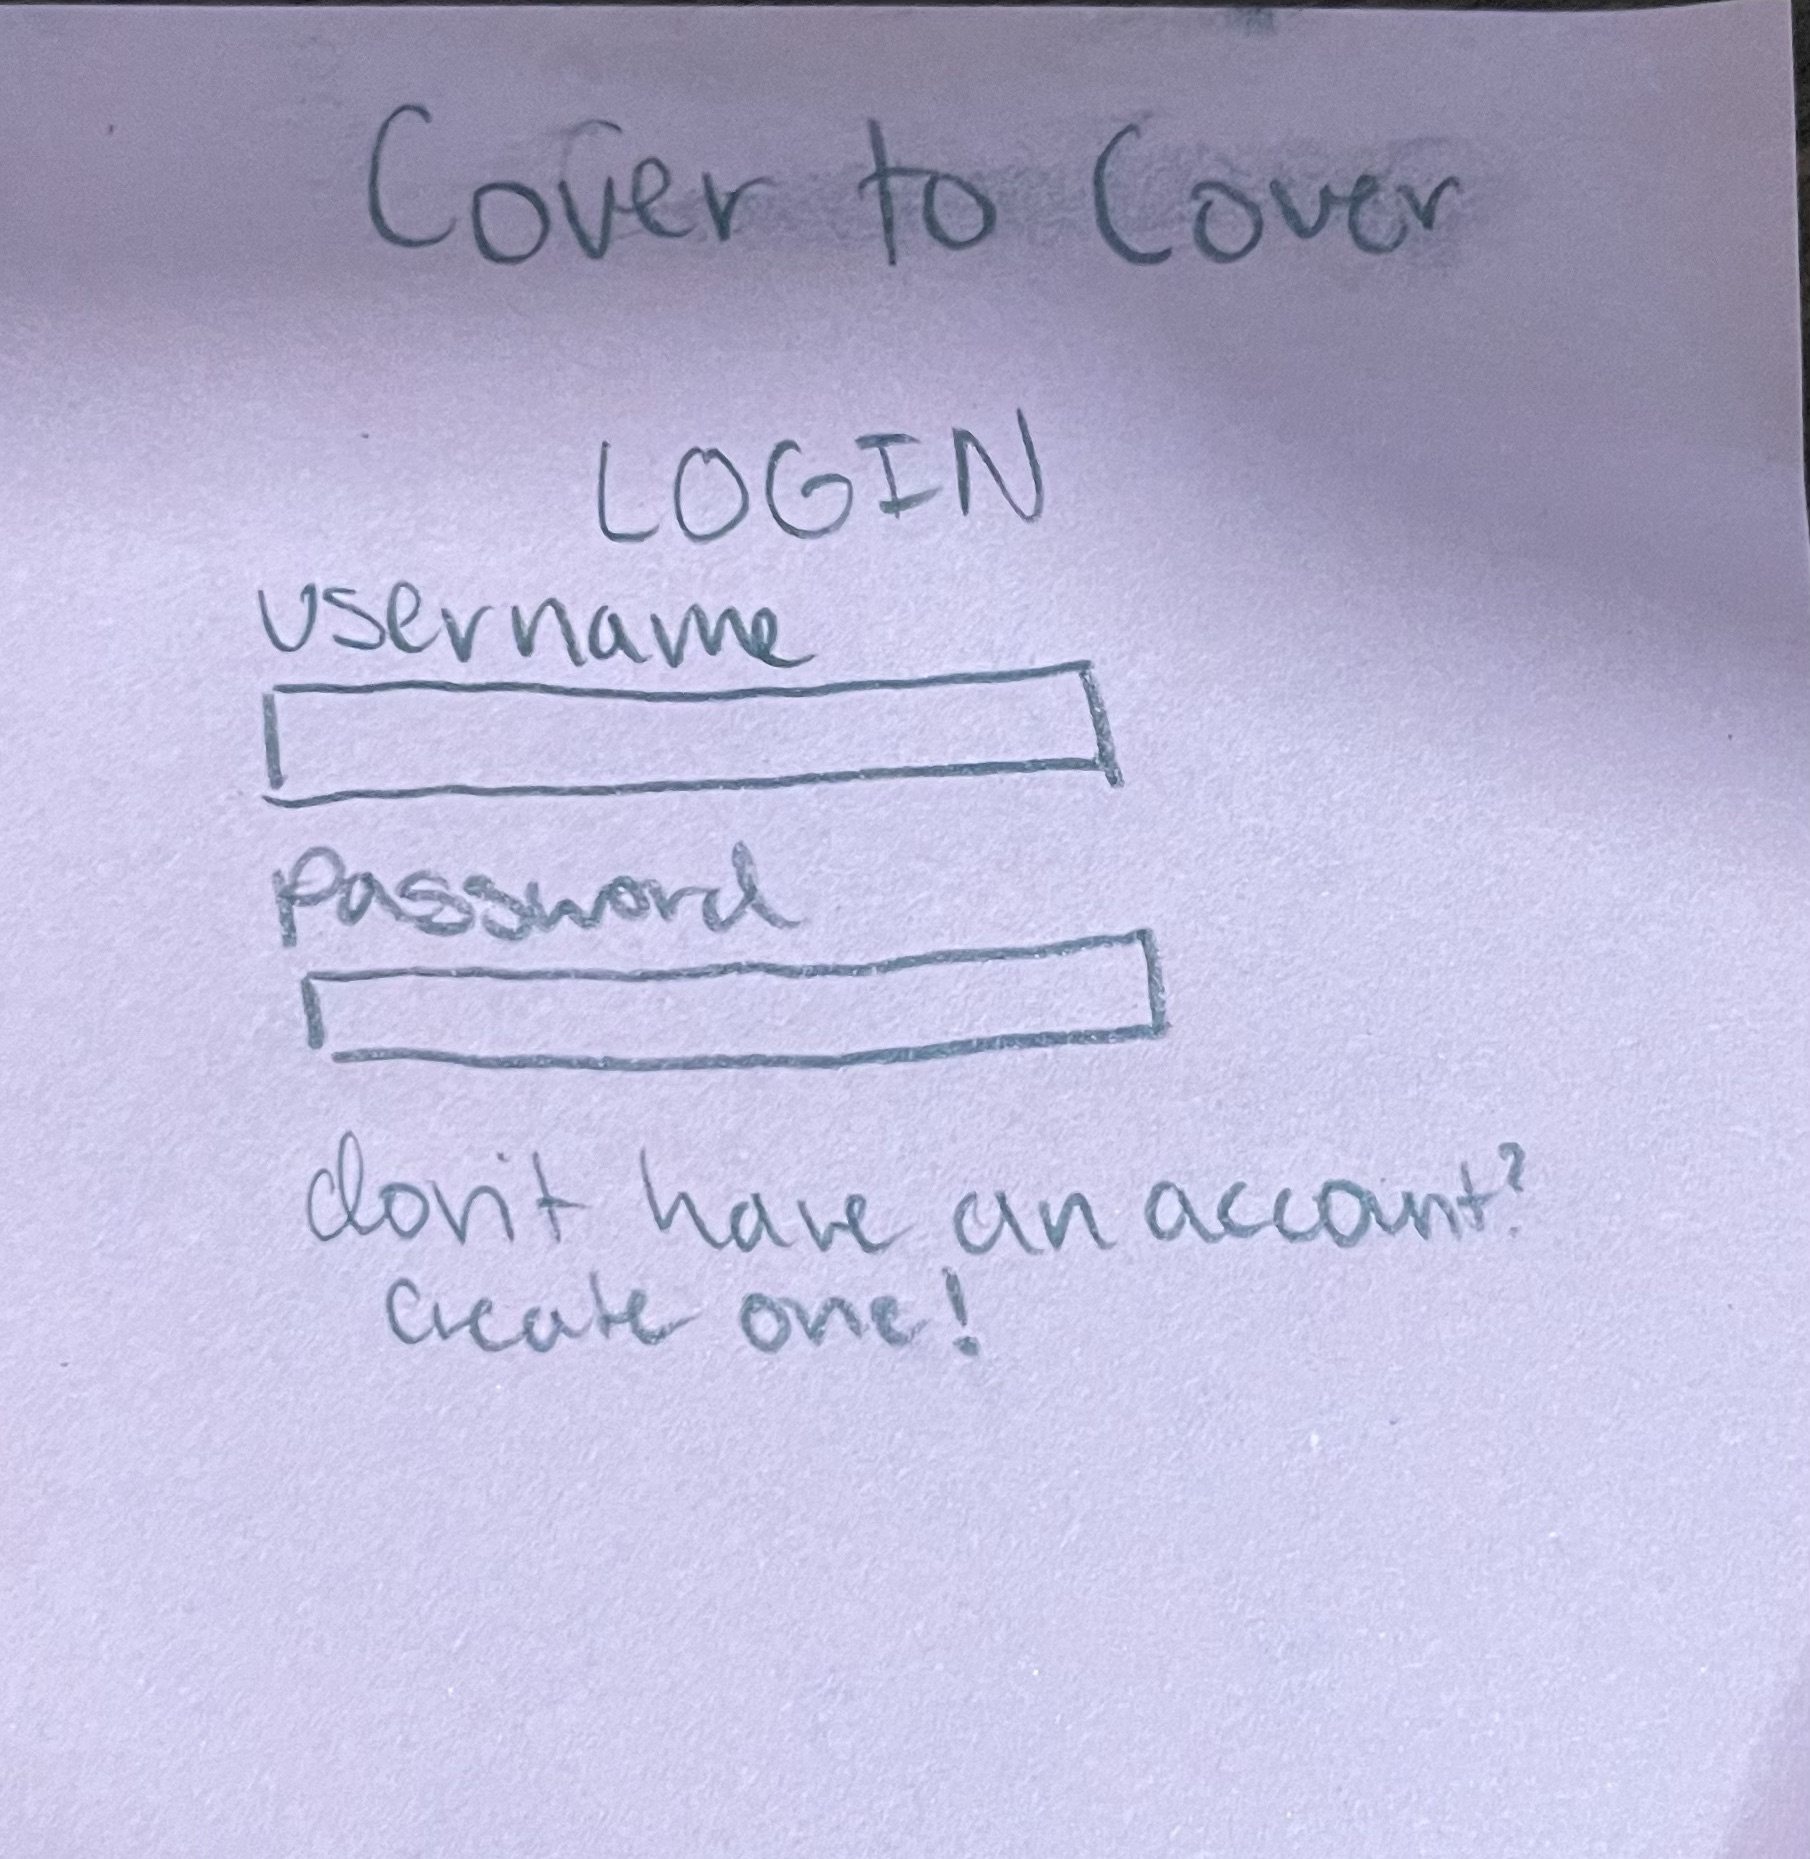 Cover to Cover
LOGIN
username
password
don't have an account?
create one!